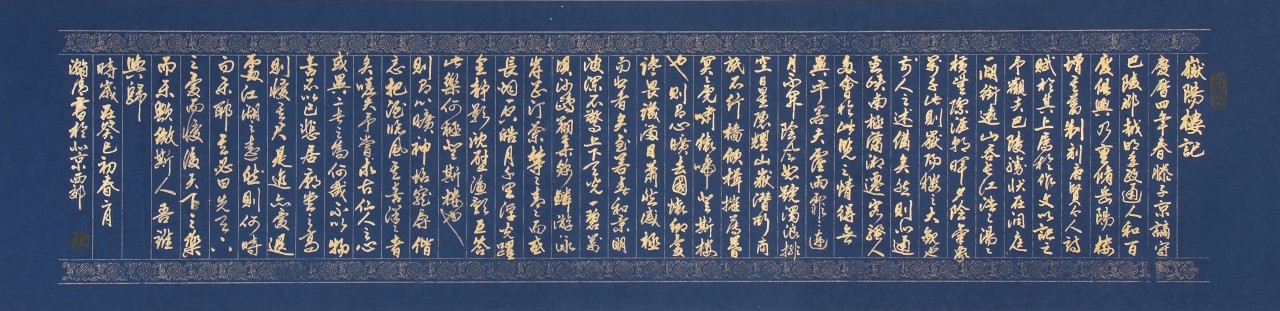 嶽陽樓記
慶曆四年春滕子京謫守
巴陵郡越明年政通人和百
廢俱興乃重修岳陽樓
增其舊制刻唐賢今人詩
賦於其上屬予作文以記之
予觀夫巴陵勝狀在洞庭
一湖銜遠山吞長江浩浩湯湯
橫無際涯朝暉夕陰氣象
萬千此則嶽陽樓之大觀也
前人之述備矣然則北通
巫峽南極瀟湘遷客騷人
多會於此覽物之情得無
異乎若夫霪雨霏霏連
月不開陰風怒號濁浪排
空日星隱耀山嶽潛形商
旅不行檣傾楫摧薄暮
冥冥虎嘯猿啼登斯樓
也則有心曠去國懷鄉憂
讒畏譏滿目蕭然感極
而悲者矣至若春和景明
波瀾不驚上下天光一碧萬
頃沙鷗翔集錦鱗游泳
岸芷汀蘭郁郁青青而或
長煙一空皓月千里浮光躍
金靜影沈璧漁歌互答
此樂何極登斯樓也
則有心曠神怡寵辱偕
忘把酒臨風其喜洋洋者
矣嗟夫予嘗求古仁人之心
或異二者之為何哉不以物
喜不以己悲居廟堂之高
則憂其民是進亦憂退
處江湖之遠然則何時
而樂耶其必曰先天下
之憂而憂後天下之樂
而樂歟微斯人吾誰
與歸
時歲在癸巳初春二月
瀚海書於北京西郊